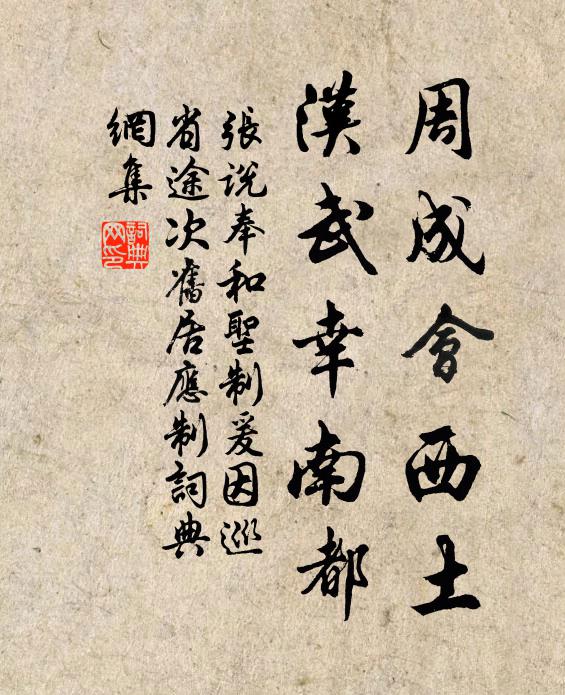 周成會西土
漢武幸南都
張說奉和聖制爰因巡
省途次舊居應制詞典
網集
詞典
网印